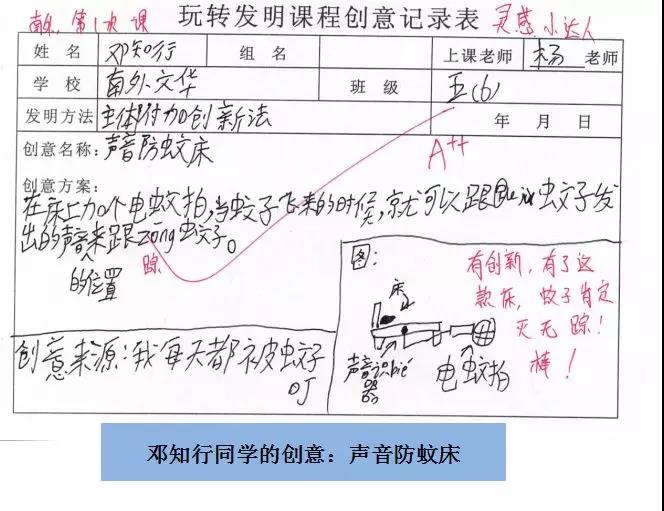 南外，第1次课 玩转发明课程创意记录表 灵感小达人
姓名 邓知行 组名 上课老师 杨 老师
学校 南外文华 班级 五(6)
发明方法 主体附加创新法 年 月 日
创意名称：声音防蚊床
A++
创意方案：
在床上加个电蚊拍，当蚊子飞来的时候，就可以跟 蚊子发
出的声音来跟zōng蚊子。
踪
的位置
图：
床
声音识bié器
电蚊拍
有创新，有了这
款床，蚊子肯定
灭无踪！
棒！
创意来源：我每天都被蚊子
叮
邓知行同学的创意：声音防蚊床